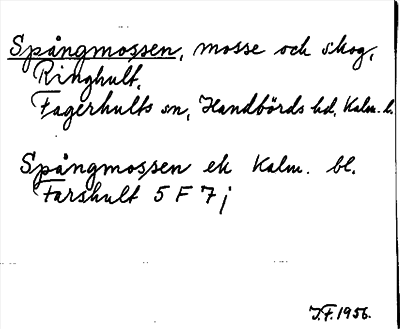 Spångmossen, mosse och skog,
Ringhult,
Fagerhults sn, Handbörds hd, Kalm. l.
Spångmossen ek Kalm. bl.
Farshult 5 F 7 j
J.F. 1956.